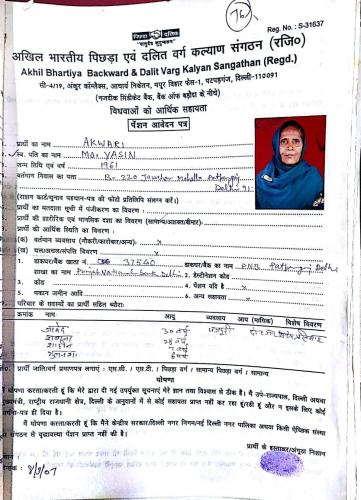 76
Reg. No. : S-31637
पिछड़ा दलित
"वसुधैव कुटुम्बकम्"
अखिल भारतीय पिछड़ा एवं दलित वर्ग कल्याण संगठन (रजि०)
Akhil Bhartiya Backward & Dalit Varg Kalyan Sangathan (Regd.)
सी-4/19, अंकुर कॉम्प्लैक्स, आचार्य निकेतन, मयूर विहार फेस-1, पटपड़गंज, दिल्ली-110091
(नजदीक सिंडीकेट बैंक, बैंक ऑफ बड़ौदा के नीचे)
विधवाओं को आर्थिक सहायता
पेंशन आवेदन पत्र
प्रार्थी का नाम AKWARI
स्व. पति का नाम MO. YASIN
जन्म तिथि एवं वर्ष 1961
वर्तमान निवास का पता B-220 Jawahar Mohalla Patparganj
Delhi-91
(राशन कार्ड/चुनाव पहचान-पत्र की फोटो प्रतिलिपि संलग्न करें।)
प्रार्थी का मतदाता सूची में पंजीकरण का विवरण :
प्रार्थी की शारीरिक एवं मानसिक दशा का विवरण (सामान्य/अशक्त/बीमार)
प्रार्थी की आर्थिक स्थिति का विवरण :
(क) वर्तमान व्यवसाय (नौकरी/कारोबार/अन्य) : x
(ख) चल/अचल/संपत्ति विवरण : x
1. डाकघर/बैंक खाता नं. 37540 डाकघर/बैंक का नाम PNB Patparganj Delhi
शाखा का नाम Punjab National Bank Delhi 2. डेस्टीनेशन कोर्ड
3. कोड 4. पेंशन यदि है x
5. मकान जमीन आदि 6. अन्य सहायता x
7. परिवार के सदस्यों का प्रार्थी सहित ब्यौरा:
क्रमांक नाम आयु व्यवसाय आय (मासिक) विशेष विवरण
जावेद 30 वर्ष मजदूरी
28 वर्ष
प्रार्थी जाति/वर्ग प्रमाणपत्र लगाएं : एस.सी. / एस.टी. / पिछड़ा वर्ग / सामान्य पिछड़ा वर्ग / सामान्य
घोषणा
मैं घोषणा करता/करती हूं कि मेरे द्वारा दी गई उपर्युक्त सूचनाएं मेरे ज्ञान तथा विश्वास से ठीक है। मैं उप-राज्यपाल, दिल्ली अथवा
मुख्यमंत्री, राष्ट्रीय राजधानी क्षेत्र, दिल्ली के अनुदानों में से कोई सहायता प्राप्त नहीं कर रहा हूं/रही हूं और न इसके लिए कोई
प्रार्थना-पत्र ही दिया है।
मैं घोषणा करता/करती हूं कि मैंने केन्द्रीय सरकार/दिल्ली नगर निगम/नई दिल्ली नगर पालिका अथवा किसी ऐच्छिक संस्था
या संगठन से वृद्धावस्था पेंशन प्राप्त नहीं की है।
प्रार्थी के हस्ताक्षर/अंगूठा निशान
दिनांक :